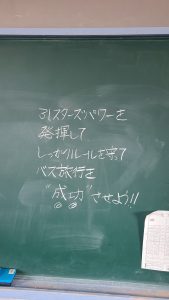 31スターズパワーを
発揮して
しっかりルールを守って
バス旅行を
"成功"させよう!!